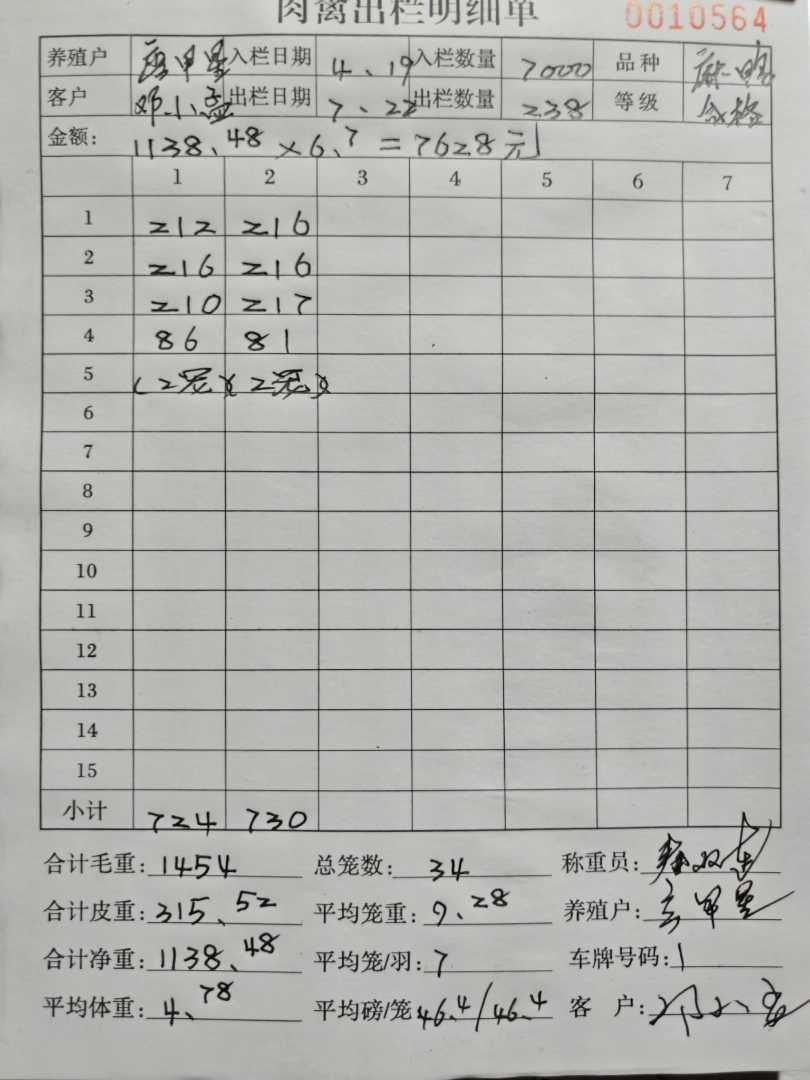 肉禽出栏明细单 0010564
养殖户 入栏日期 4、19 入栏数量 7000 品种 麻鸭
客户 邓小孟 出栏日期 7、22 出栏数量 238 等级 合格
金额: 1138、48 × 6、7 = 7628元
1 2 3 4 5 6 7
1 212 216
2 216 216
3 210 217
4 86 81
5 (2笼) (2笼)
6
7
8
9
10
11
12
13
14
15
小计 724 730
合计毛重: 1454 总笼数: 34 称重员:
合计皮重: 315、52 平均笼重: 9、28 养殖户:
合计净重: 1138、48 平均笼/羽: 7 车牌号码: 1
平均体重: 4、78 平均磅/笼 46.4/46.4 客 户: